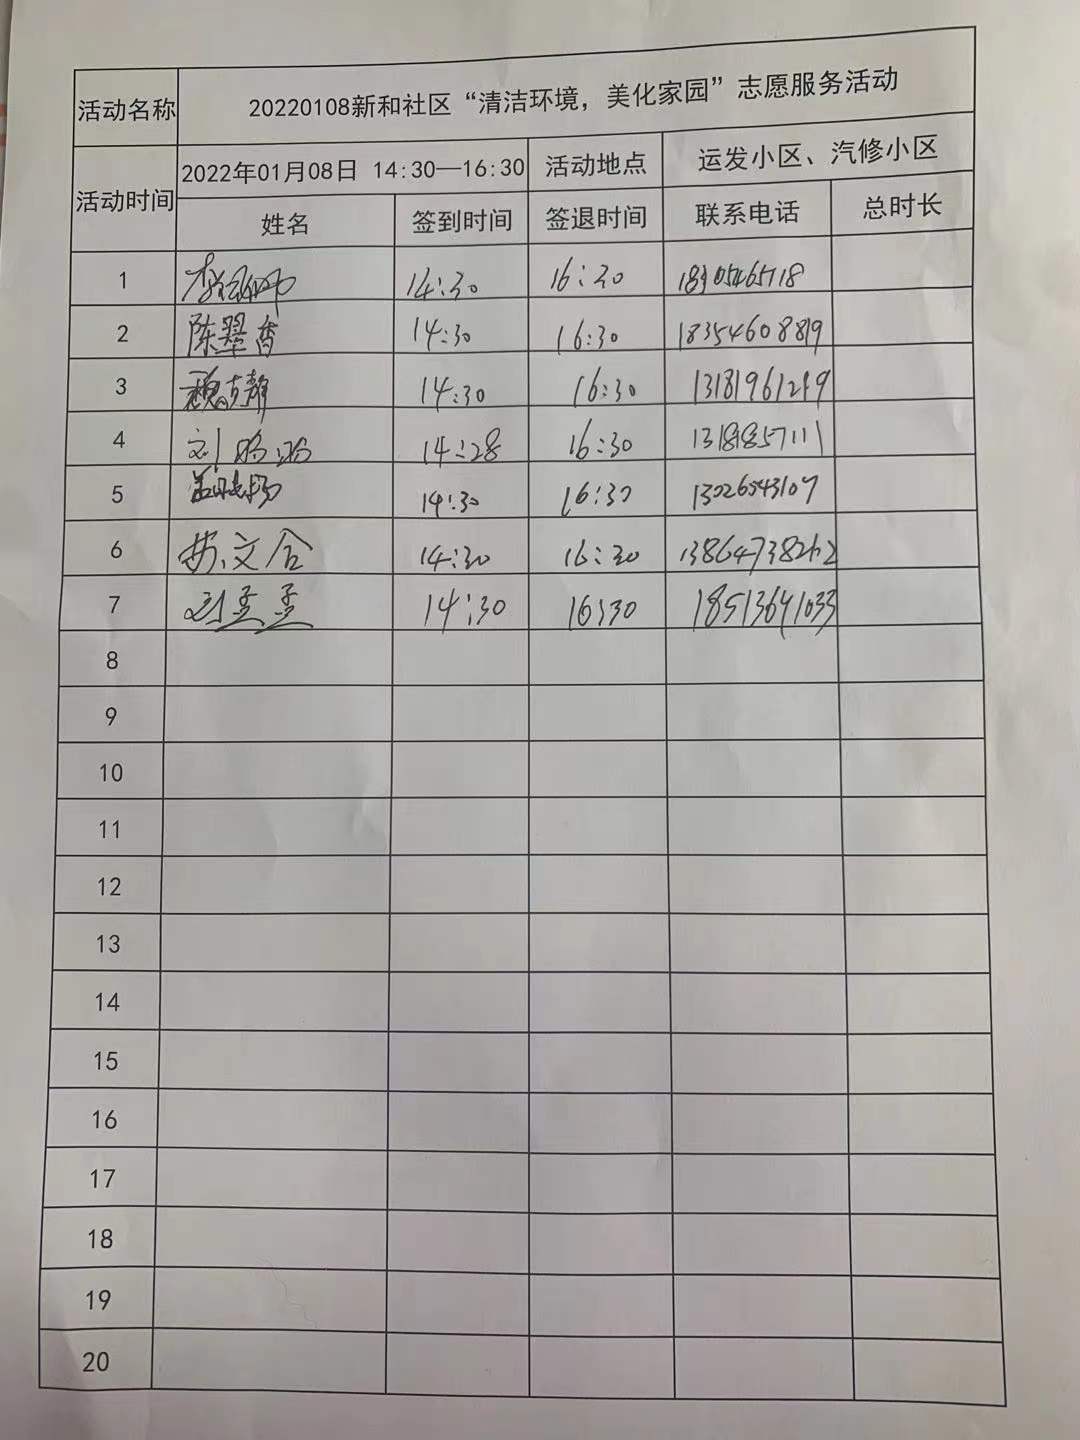 活动名称 20220108新和社区“清洁环境，美化家园”志愿服务活动
活动时间 2022年01月08日 14:30—16:30 活动地点 运发小区、汽修小区
姓名 签到时间 签退时间 联系电话 总时长
1 14:30 16:30
2 陈翠香 14:30 16:30 18354608819
3 14:30 16:30
4 刘 14:28 16:30
5 14:30 16:30 13026543107
6 苏文合 14:30 16:30 13864738262
7 刘孟孟 14:30 16:30 18513641033
8
9
10
11
12
13
14
15
16
17
18
19
20